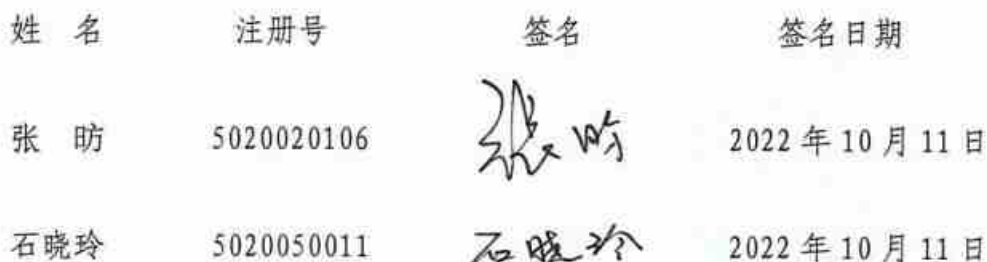 姓 名 注册号 签名 签名日期
张 昉 5020020106 张昉 2022年10月11日
石晓玲 5020050011 石晓玲 2022年10月11日